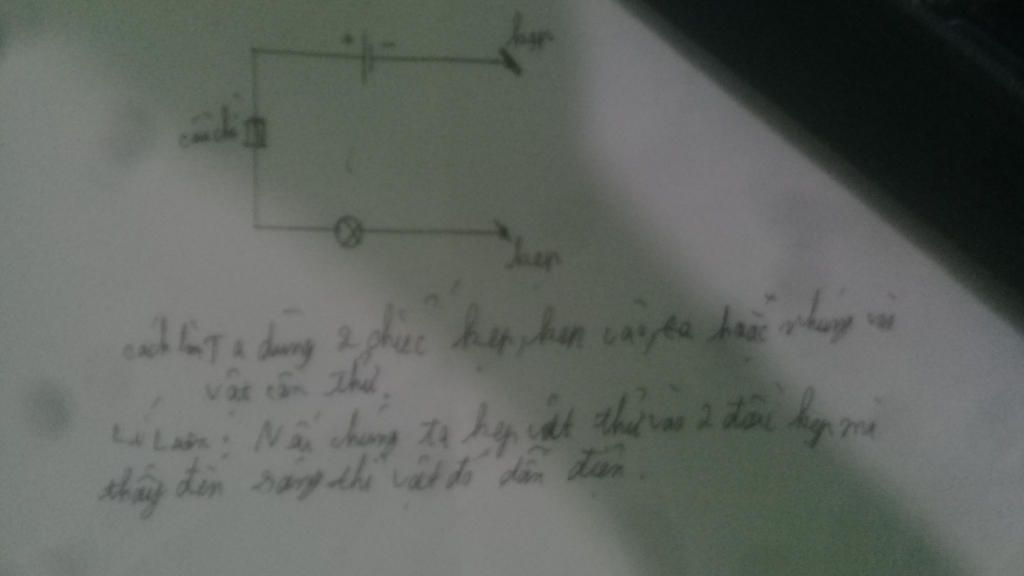 + - kẹp
cầu chì
kẹp
cách làm Ta dùng 2 chiếc kẹp, kẹp vào, hoặc nhúng vào
vật cần thử.
Lí Luận: Nếu chúng ta kẹp vật thử vào 2 đầu kẹp mà
thấy đèn sáng thì vật đó dẫn điện.